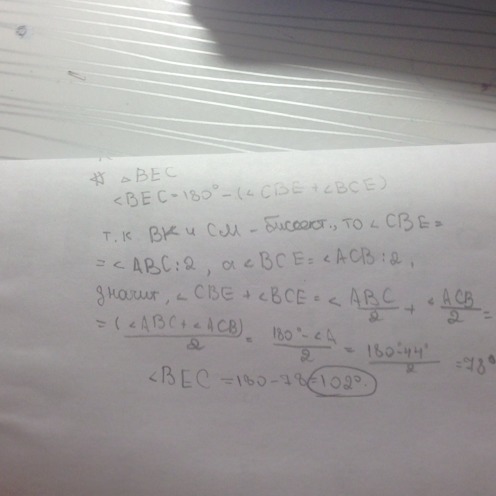 △ BEC
∠BEC = 180° - (∠CBE + ∠BCE)
т.к. BK и CM - биссект., то ∠CBE =
= ∠ABC : 2, а ∠BCE = ∠ACB : 2,
значит, ∠CBE + ∠BCE = ∠ABC/2 + ∠ACB/2 =
= (∠ABC + ∠ACB)/2 = 180° - ∠A/2 = 180° - 44°/2 = 78°
∠BEC = 180 - 78 = 102°.